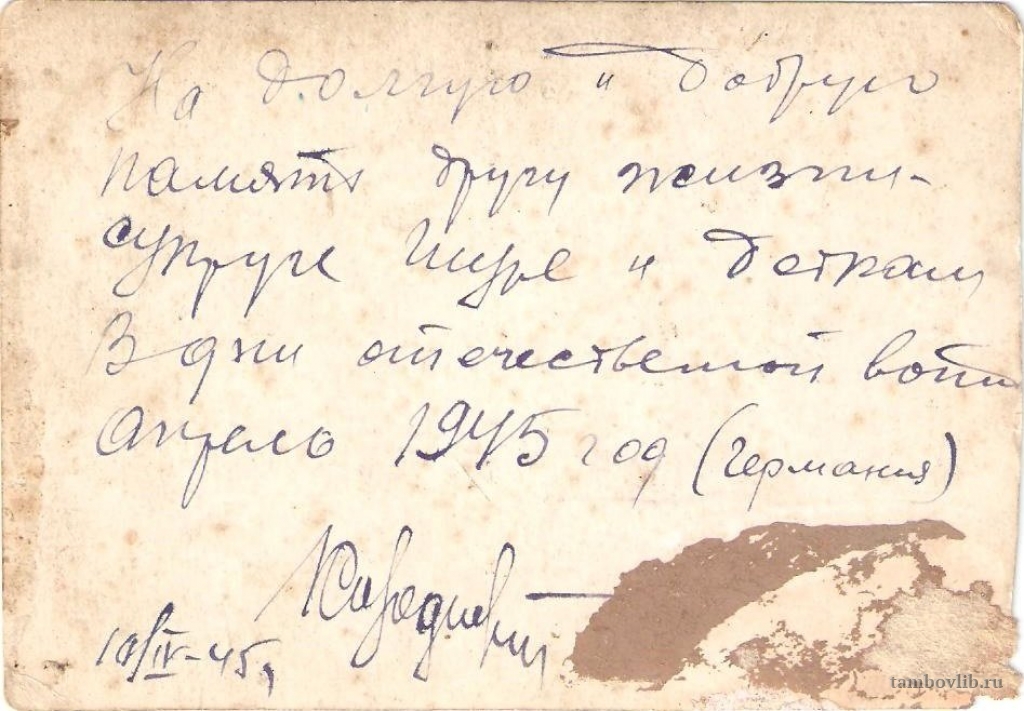 На долгую и добрую
память другу жизни-
супруге Шуре и деткам
В дни отечественной войны
апрель 1945 год (Германия)
10/IV-45,
tambovlib.ru